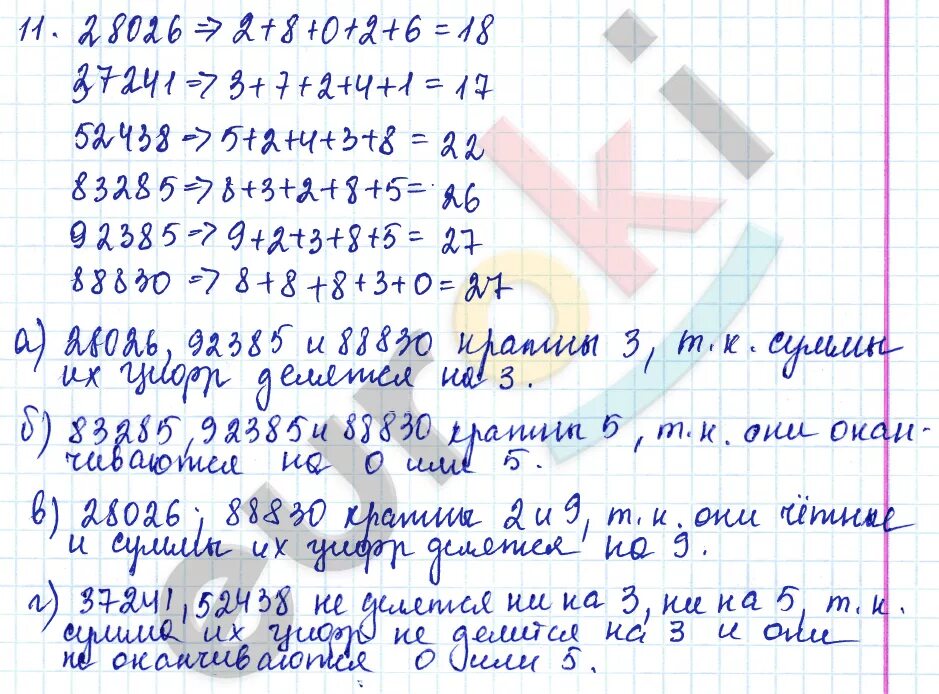 11. 28026 => 2+8+0+2+6=18
37241 => 3+7+2+4+1=17
52438 => 5+2+4+3+8= 22
83285 => 8+3+2+8+5= 26
92385 => 9+2+3+8+5= 27
88830 => 8+8+8+3+0=27
а) 28026, 92385 и 88830 кратны 3, т.к. суммы
их цифр делятся на 3.
б) 83285, 92385 и 88830 кратны 5, т.к. они окан-
чиваются на 0 или 5.
в) 28026; 88830 кратны 2 и 9, т.к. они чётные
и суммы их цифр делятся на 9.
г) 37241, 52438 не делятся ни на 3, ни на 5, т.к.
сумма их цифр не делится на 3 и они
не оканчиваются 0 или 5.
euroki